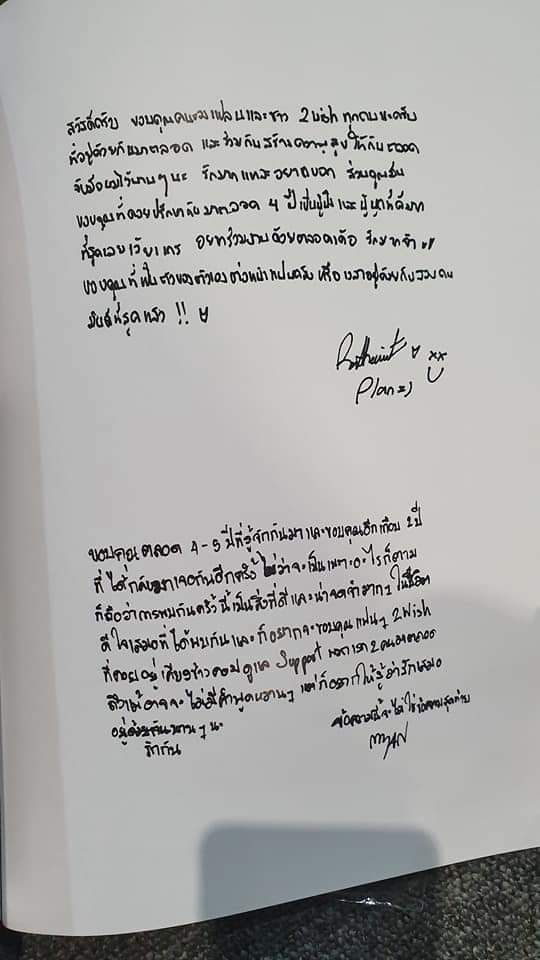 สวัสดีครับ ขอบคุณคนของแปลนและชาว 2wish ทุกคนนะครับ
ที่อยู่ด้วยกันมาตลอด และช่วยกันสร้างความสุขให้กันตลอด
จับมือผมไว้นานๆนะ รักมากและอยากบอก
ขอบคุณที่คอยปรึกษากันมาตลอด 4 ปี เป็นผู้ฟังและผู้พูดที่ดีมาก
ที่สุดเลย อยากร่วมงานด้วยตลอด
ขอบคุณที่เป็นตัวของตัวเอง
ที่สุดแล้ว !!
Plan
ขอบคุณตลอด 4-5 ปีที่รู้จักกันมา และขอบคุณอีกเกือบ 2 ปี
ที่ได้กลับมาเจอกันอีกครั้ง ไม่ว่าจะเป็นเพราะอะไรก็ตาม
ก็ถือว่าการพบกันครั้งนี้เป็นสิ่งที่ดีและน่าจดจำมากๆ ในชีวิต
ดีใจเสมอที่ได้พบกันและก็อยากจะขอบคุณแฟนๆ 2wish
ที่คอยอยู่เคียงข้างคอยดูแล Support พวกเรา 2 คนมาตลอด
ถึงแม้อาจจะไม่มีคำพูดหวานๆ แต่ก็อยากให้รู้ว่ารักเสมอ
อยู่ด้วยกันนานๆนะ
รักกัน
ข้อความนี้จะไม่ใช่ข้อความสุดท้าย